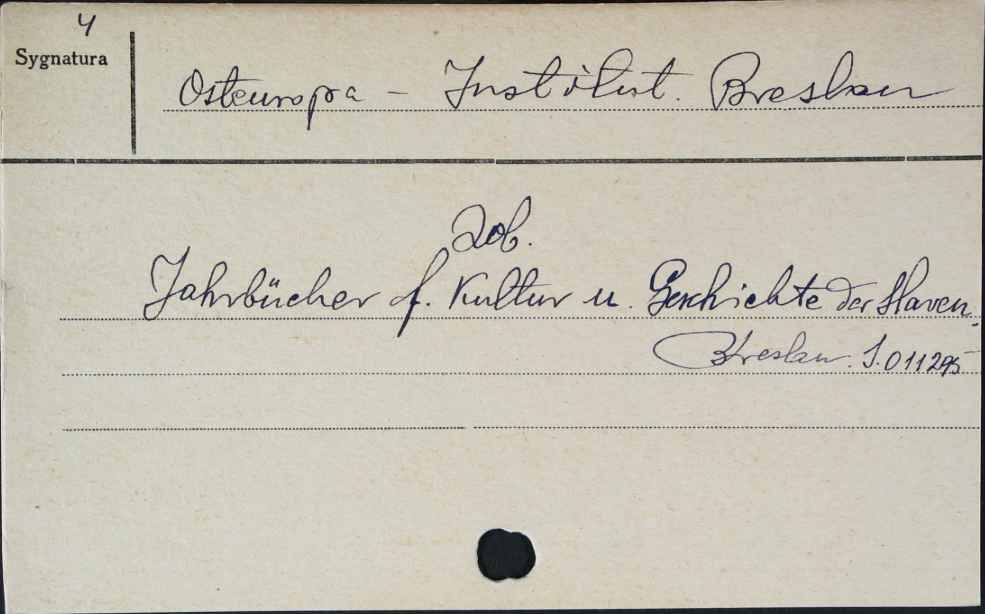 4
Sygnatura
Osteuropa - Institut. Breslau
Zob.
Jahrbücher f. Kultur u. Geschichte der Slaven.
Breslau. S.011295